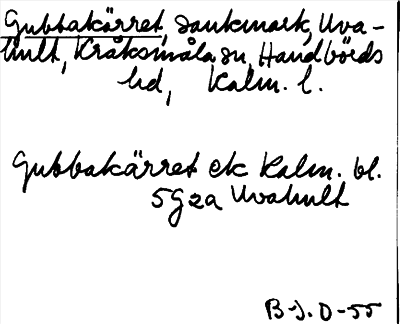 Gubbakärret, sankmark, Uva-
hult, Kråksmåla sn, Handbörds
hd, Kalm. l.
Gubbakärret ek Kalm. bl.
5G2a Uvahult
B-J. O-55